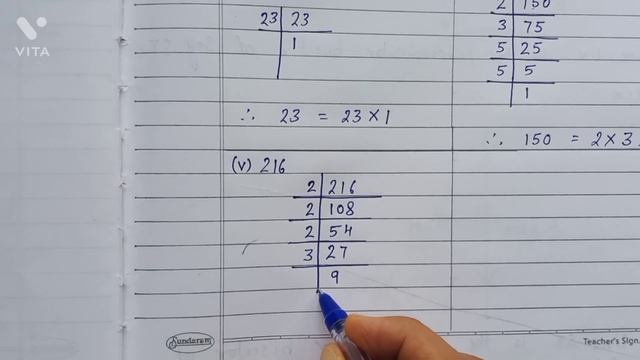 VITA
23 | 23
1
∴ 23 = 23 × 1
2 | 150
3 | 75
5 | 25
5 | 5
1
∴ 150 = 2 × 3
(v) 216
2 | 216
2 | 108
2 | 54
3 | 27
9
Sundaram
Teacher's Sign